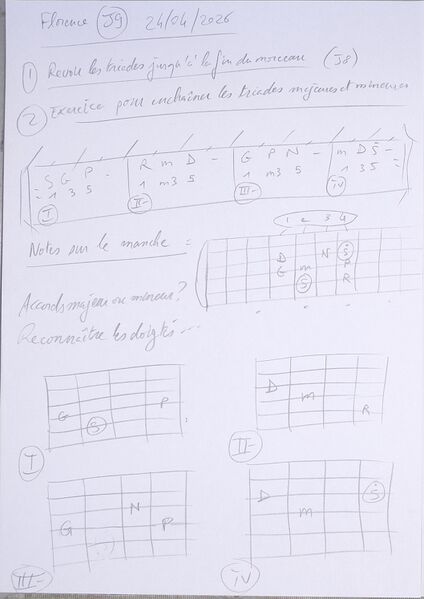 Florence J9 24/04/2026
1 Revoir les triades jusqu'à la fin du morceau (J8)
2 Exercice pour enchaîner les triades majeures et mineures
S G P - R m D - G P N - m D Ṡ -
1 3 5 1 m3 5 1 m3 5 1 3 5
I II- III- IV
1 2 3 4
Notes sur le manche =
D N Ṡ
G m P
S R
Accords majeur ou mineur?
Reconnaître les doigtés...
G S P
I
D m R
II-
G N P
III-
D m Ṡ
IV